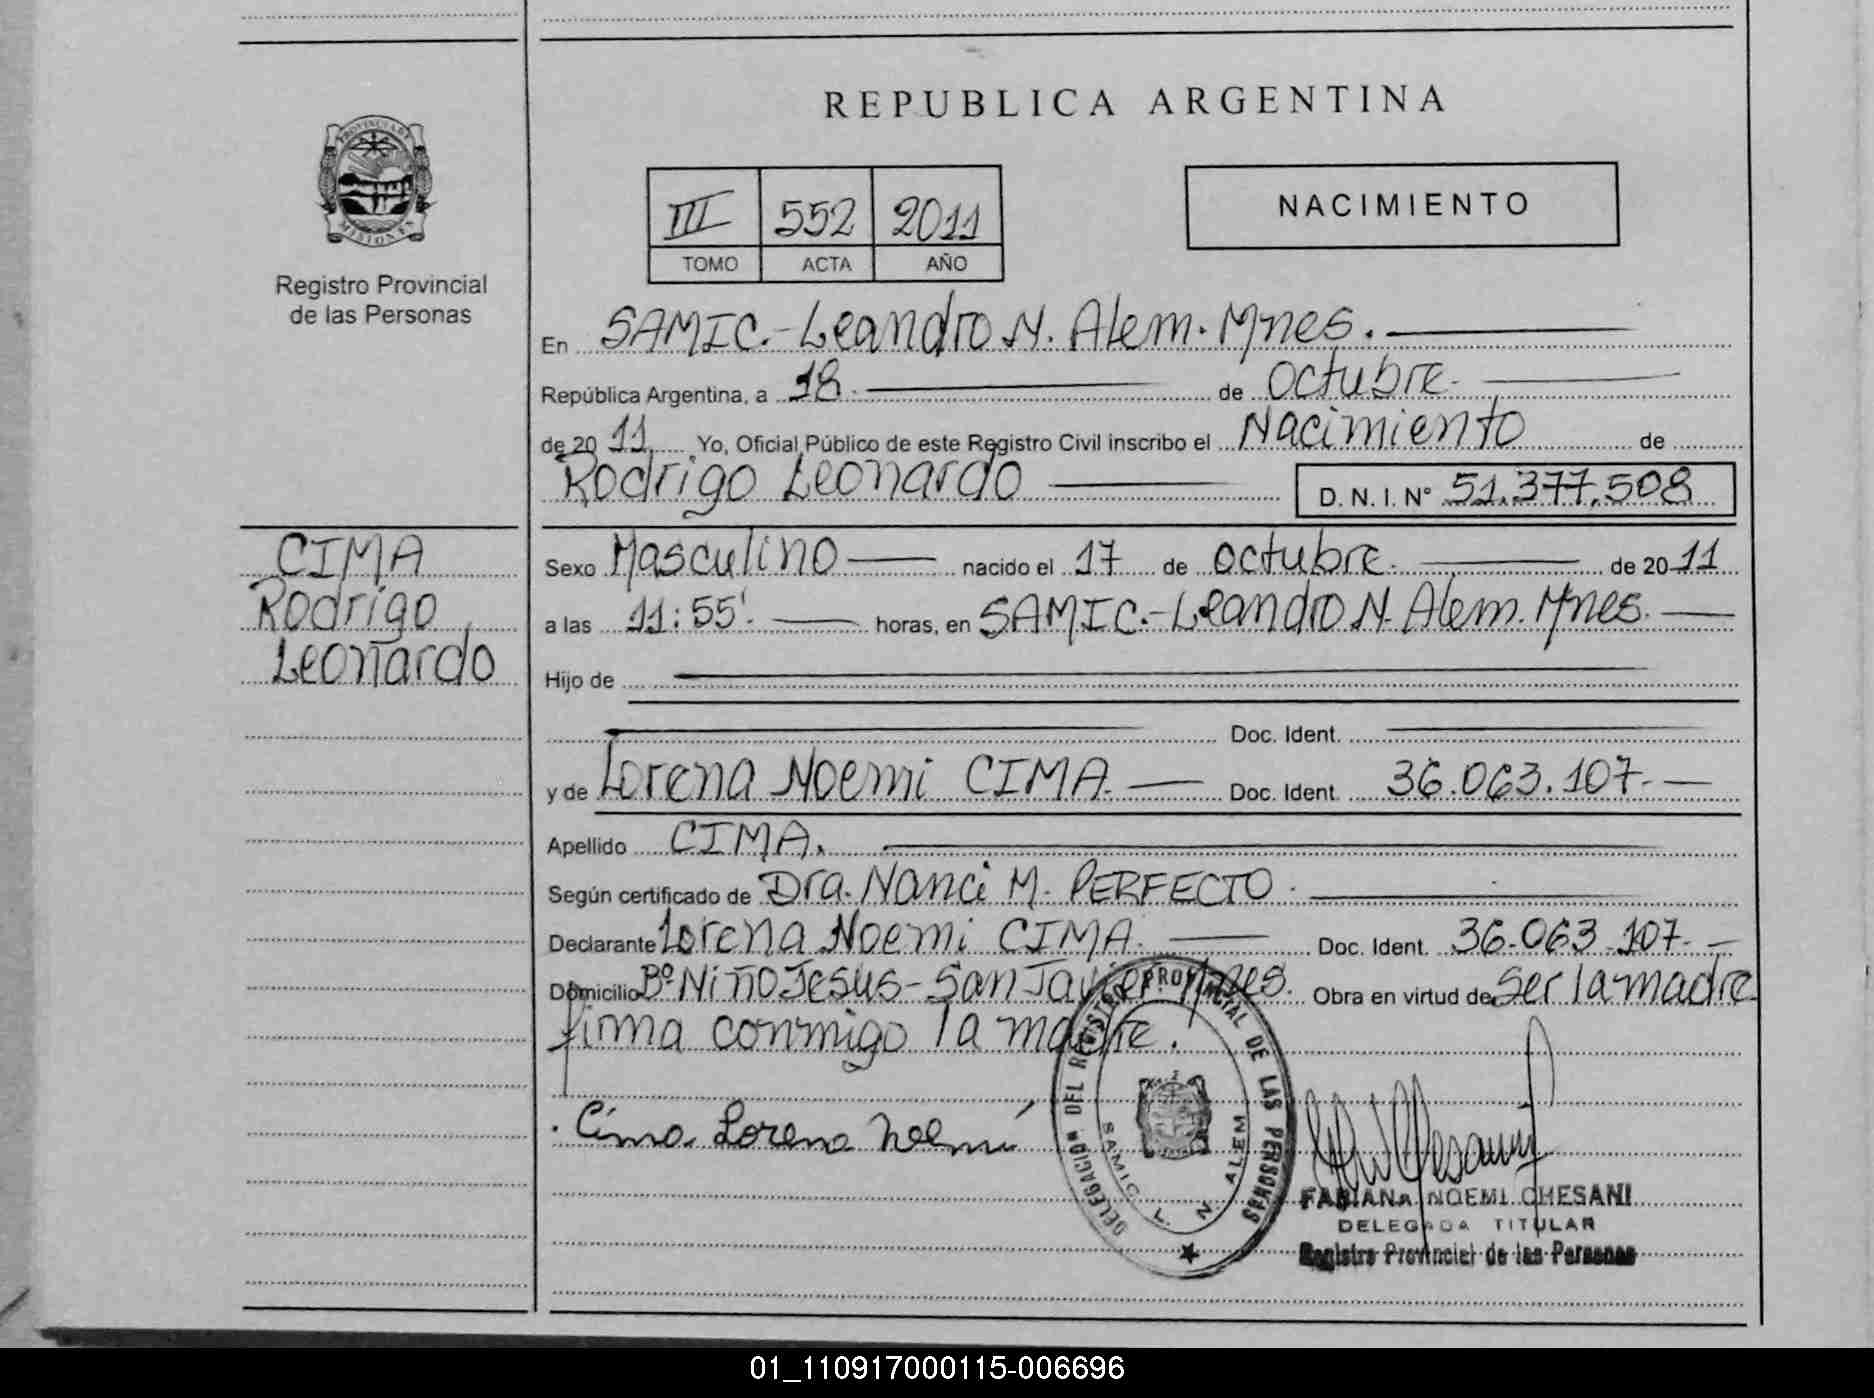 REPUBLICA ARGENTINA
PROVINCIA DE
MISIONES
Registro Provincial
de las Personas
III 552 2011
TOMO ACTA AÑO
NACIMIENTO
En SAMIC.-Leandro N. Alem. Mnes.
República Argentina, a 18. de octubre.
de 20 11 Yo, Oficial Público de este Registro Civil inscribo el Nacimiento de
Rodrigo Leonardo D. N. I. N° 51.377.508
CIMA
Rodrigo
Leonardo
Sexo Masculino nacido el 17 de octubre. de 20 11
a las 11:55'. horas, en SAMIC.-Leandro N. Alem. Mnes.
Hijo de
Doc. Ident.
y de Lorena Noemi CIMA. Doc. Ident. 36.063.107.
Apellido CIMA.
Según certificado de Dra. Nanci M. PERFECTO.
Declarante Lorena Noemi CIMA. Doc. Ident. 36.063.107.
Domicilio Bº Niño Jesus-San Javier Mnes. Obra en virtud de Ser la madre
firma conmigo la madre.
Cima Lorena Noemí
DELEGACION DEL REGISTRO PROVINCIAL DE LAS PERSONAS
SAMIC L. N. ALEM
FABIANA NOEMI CHESANI
DELEGADA TITULAR
Registro Provincial de las Personas
01_110917000115-006696